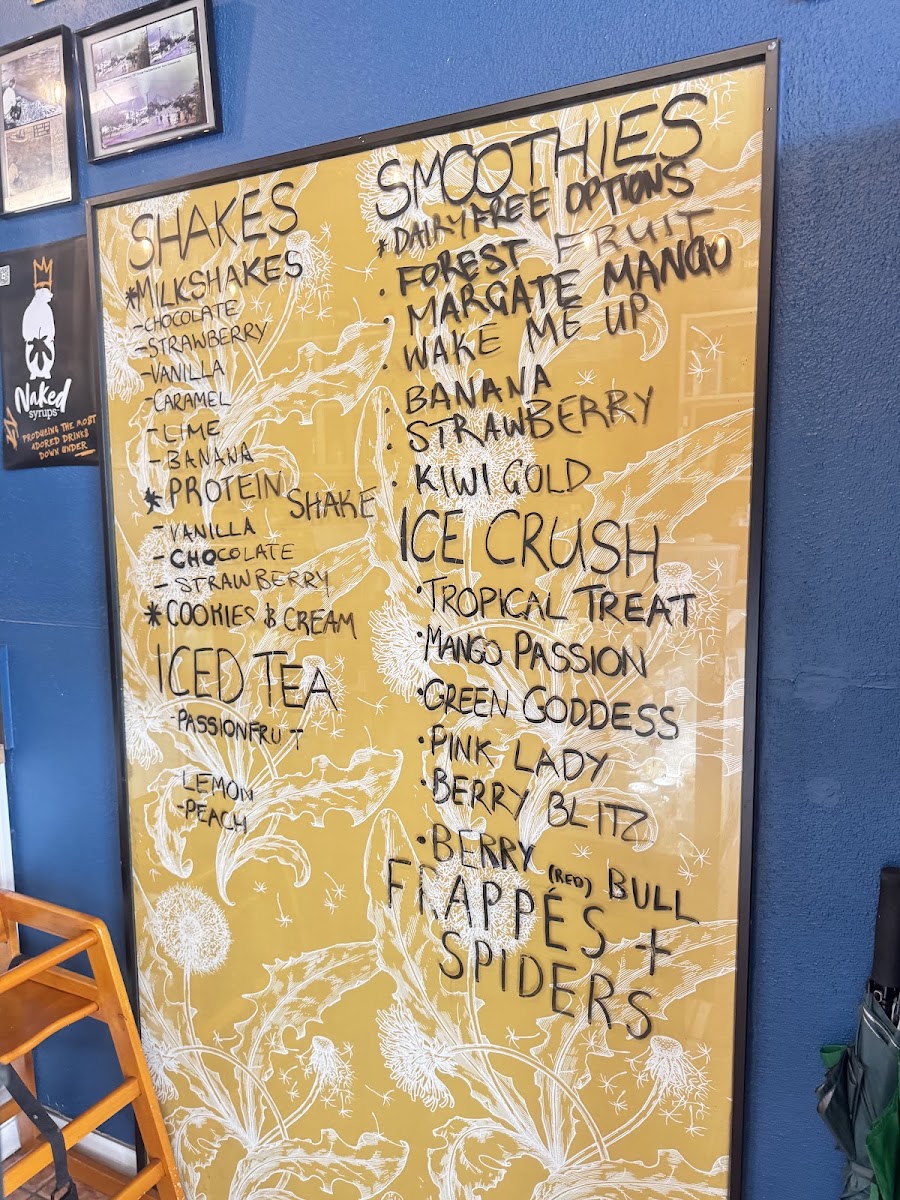 SHAKES
*MILKSHAKES
-CHOCOLATE
-STRAWBERRY
-VANILLA
-CARAMEL
- LIME
- BANANA
*PROTEIN SHAKE
- VANILLA
- CHOCOLATE
- STRAWBERRY
*COOKIES & CREAM
ICED TEA
-PASSIONFRUIT
LEMON
-PEACH
SMOOTHIES
*DAIRYFREE OPTIONS
• FOREST FRUIT
• MARGATE MANGO
• WAKE ME UP
• BANANA
• STRAWBERRY
• KIWI GOLD
ICE CRUSH
•TROPICAL TREAT
•MANGO PASSION
•GREEN GODDESS
•PINK LADY
•BERRY BLITZ
•BERRY (RED) BULL
FRAPPÉS +
SPIDERS
Naked
syrups
PRODUCING THE MOST
ADORED DRINKS
DOWN UNDER